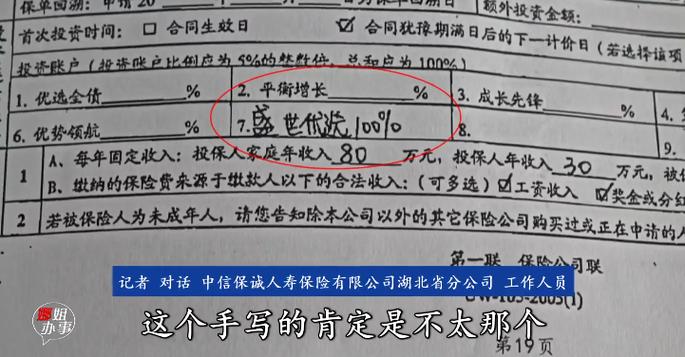 保单回溯：申请20
额外投资金额：
首次投资时间：□ 合同生效日 ☑ 合同犹豫期满日后的下一计价日（若选择该项
投资账户（投资账户比例应为5%的整数倍，总和应为100%）
1. 优选全债______% 2. 平衡增长______% 3. 成长先锋______% 4.
6. 优势领航______% 7. 盛世优选 100% 8. 9.
1 A、每年固定收入：投保人家庭年收入 80 万元，投保人年收入 30 万元，被保
B、缴纳的保险费来源于缴款人以下的合法收入：（可多选）☑工资收入 ☑奖金或分红
2 若被保险人为未成年人，请您告知除本公司以外的其它保险公司购买过或正在申请的人
第一联 保险公司联
记者 对话 中信保诚人寿保险有限公司湖北省分公司 工作人员
姐
办事
这个手写的肯定是不太那个
第19页